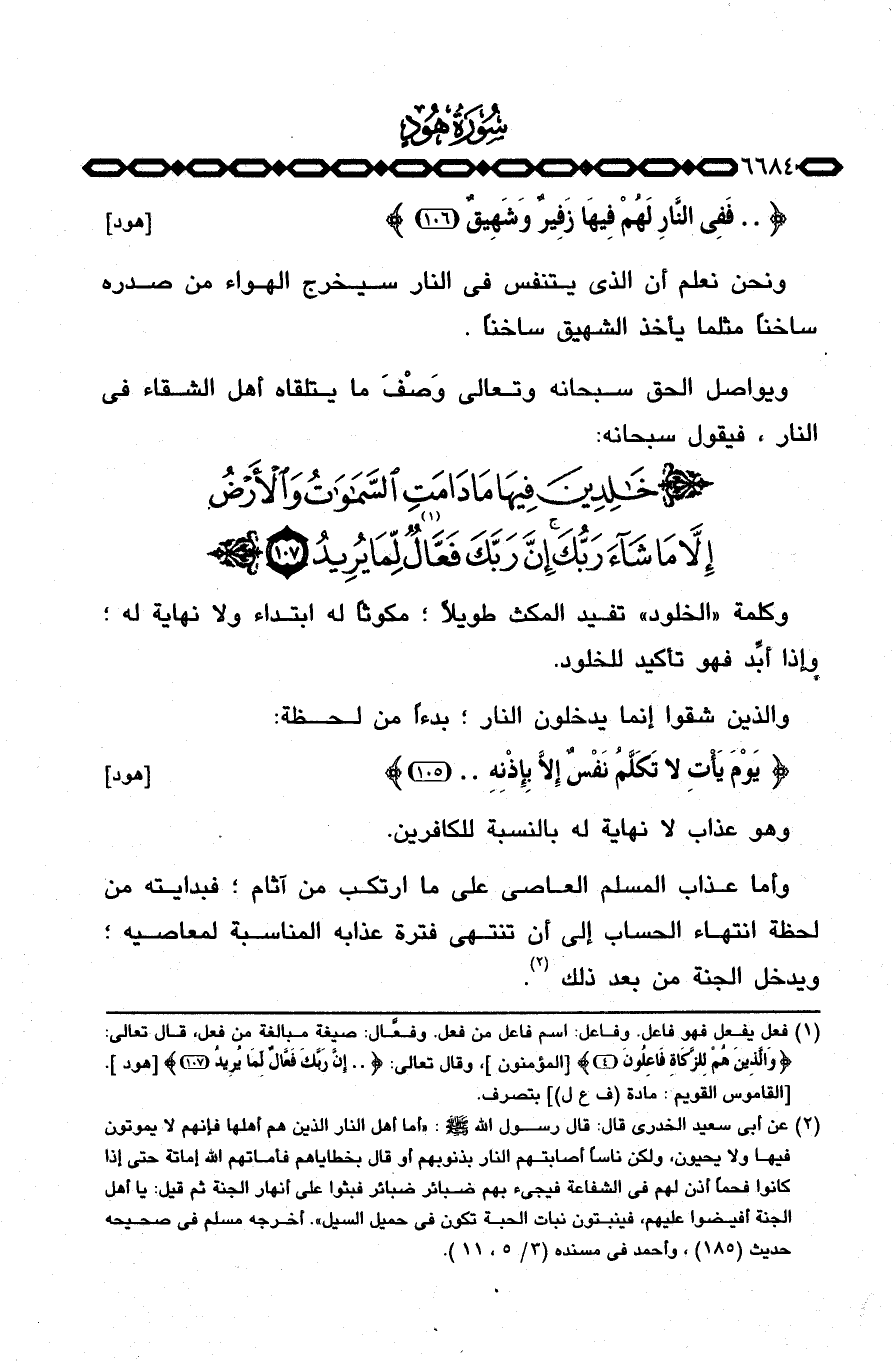 سُورَةُ هُودٍ
٦٦٨٤
﴿ .. فَفِى النَّارِ لَهُمْ فِيهَا زَفِيرٌ وَشَهِيقٌ (١٠٦) ﴾ [هود]
ونحن نعلم أن الذى يتنفس فى النار سيخرج الهواء من صدره
ساخناً مثلما يأخذ الشهيق ساخناً .
ويواصل الحق سبحانه وتعالى وَصْفَ ما يتلقاه أهل الشقاء فى
النار ، فيقول سبحانه:
﴿ خَـٰلِدِينَ فِيهَا مَا دَامَتِ ٱلسَّمَـٰوَٰتُ وَٱلْأَرْضُ
إِلَّا مَا شَآءَ رَبُّكَ ۚ إِنَّ رَبَّكَ فَعَّالٌ (١) لِّمَا يُرِيدُ (١٠٧) ﴾
وكلمة «الخلود» تفيد المكث طويلاً ؛ مكوثاً له ابتداء ولا نهاية له ؛
وإذا أبِّد فهو تأكيد للخلود.
والذين شقوا إنما يدخلون النار ؛ بدءاً من لحظة:
﴿ يَوْمَ يَأْتِ لا تَكَلَّمُ نَفْسٌ إِلاَّ بِإِذْنِهِ .. (١٠٥) ﴾ [هود]
وهو عذاب لا نهاية له بالنسبة للكافرين.
وأما عذاب المسلم العاصى على ما ارتكب من آثام ؛ فبدايته من
لحظة انتهاء الحساب إلى أن تنتهى فترة عذابه المناسبة لمعاصيه ؛
ويدخل الجنة من بعد ذلك (٢).
(١) فعل يفعل فهو فاعل. وفاعل: اسم فاعل من فعل. وفعَّال: صيغة مبالغة من فعل، قال تعالى:
﴿ وَالَّذِينَ هُمْ لِلزَّكَاةِ فَاعِلُونَ (٤) ﴾ [المؤمنون ]، وقال تعالى: ﴿ .. إِنَّ رَبَّكَ فَعَّالٌ لِّمَا يُرِيدُ (١٠٧) ﴾ [هود ].
[القاموس القويم : مادة (ف ع ل)] بتصرف.
(٢) عن أبى سعيد الخدرى قال: قال رسول الله ﷺ : «أما أهل النار الذين هم أهلها فإنهم لا يموتون
فيها ولا يحيون، ولكن ناساً أصابتهم النار بذنوبهم أو قال بخطاياهم فأماتهم الله إماتة حتى إذا
كانوا فحماً أذن لهم فى الشفاعة فيجىء بهم ضبائر ضبائر فبثوا على أنهار الجنة ثم قيل: يا أهل
الجنة أفيضوا عليهم، فينبتون نبات الحبة تكون فى حميل السيل». أخرجه مسلم فى صحيحه
حديث (١٨٥) ، وأحمد فى مسنده (٣/ ٥ ، ١١ ).